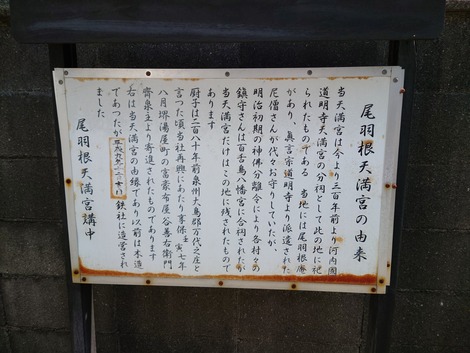 尾羽根天満宮の由来
当天満宮は今より三百年前より河内國
道明寺天満宮の分祠として此の地に祀
られたものである 当地には尾羽根庵
があり、真言宗道明寺より派遣された
尼僧さんが代々お守りしていたが、
明治初期の神佛分離令により各村々の
鎮守さんは百舌鳥八幡宮に合祠されたが
当天満宮だけはこの地に残されたもので
あります
厨子は二百八十年前泉州大鳥郡万代之庄と
言つた頃当社再興にあたり享保壬寅七年
八月堺湯屋町の富豪布屋谷善右衛門
齊泉主より寄進されたものであります
右は当天満宮の由縁であり以前は木造
であつたが 鉄社に造営され
ました
尾羽根天満宮講中